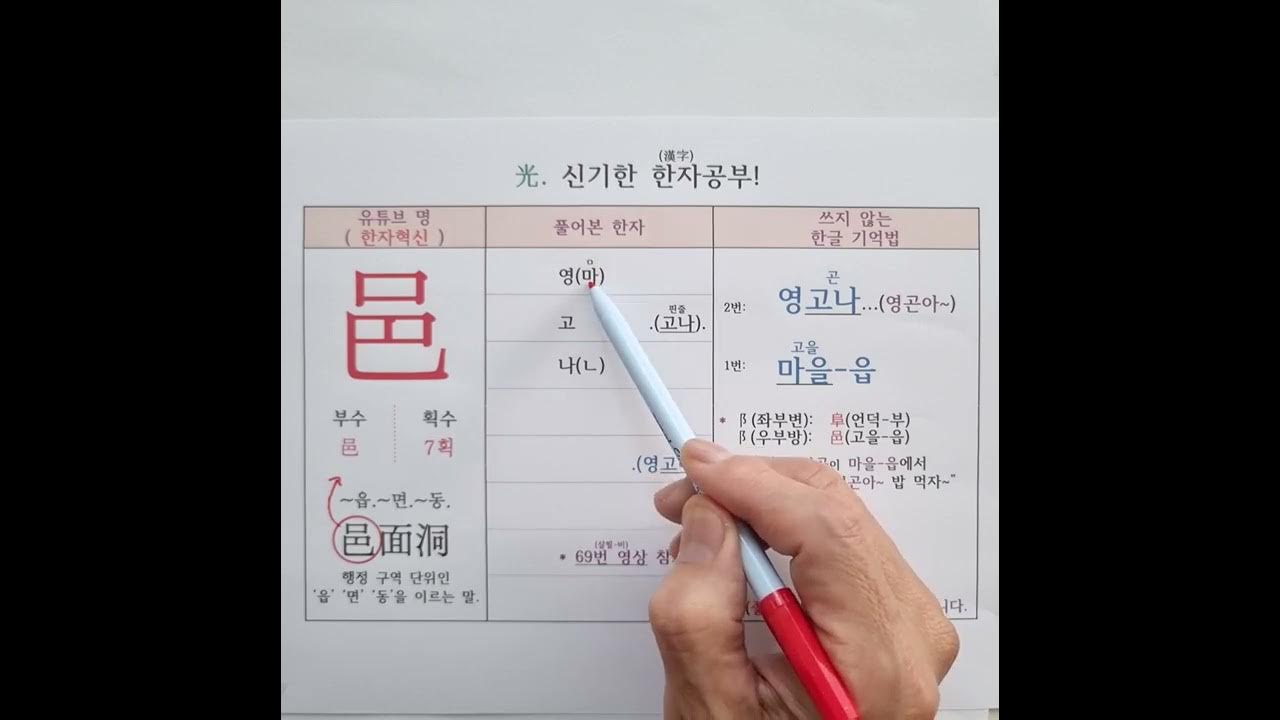 (漢字)
光. 신기한 한자공부!
유튜브 명
( 한자혁신 )
풀어본 한자
쓰지 않는
한글 기억법
邑
부수
획수
邑
7획
~읍.~면.~동.
邑面洞
행정 구역 단위인
'읍' '면' '동'을 이르는 말.
ㅁ
영(마)
핀줄
고 .(고나).
나(ㄴ)
.(영고
(살필-비)
* 69번 영상 참
곤
2번: 영고나...(영곤아~)
고을
1번: 마을-읍
* 阝(좌부변): 阜(언덕-부)
阝(우부방): 邑(고을-읍)
마을-읍에서
곤아~ 밥 먹자~"
니다.